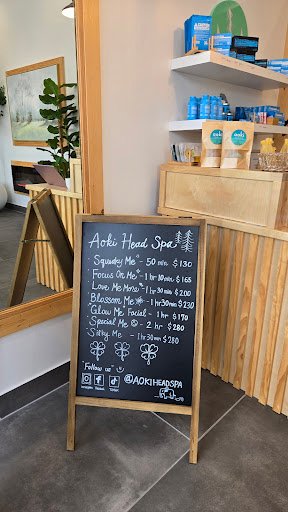 Aoki Head Spa
Squeaky Me - 50 min $130
Focus On Me - 1 hr 10 min $165
Love Me More - 1 hr 30 min $200
Blossom Me - 1 hr 30 min $230
Glow Me Facial - 1 hr $170
Special Me - 2 hr $280
Silky Me - 1 hr 30 min $280
Follow us
@AOKIHEADSPA
aoki